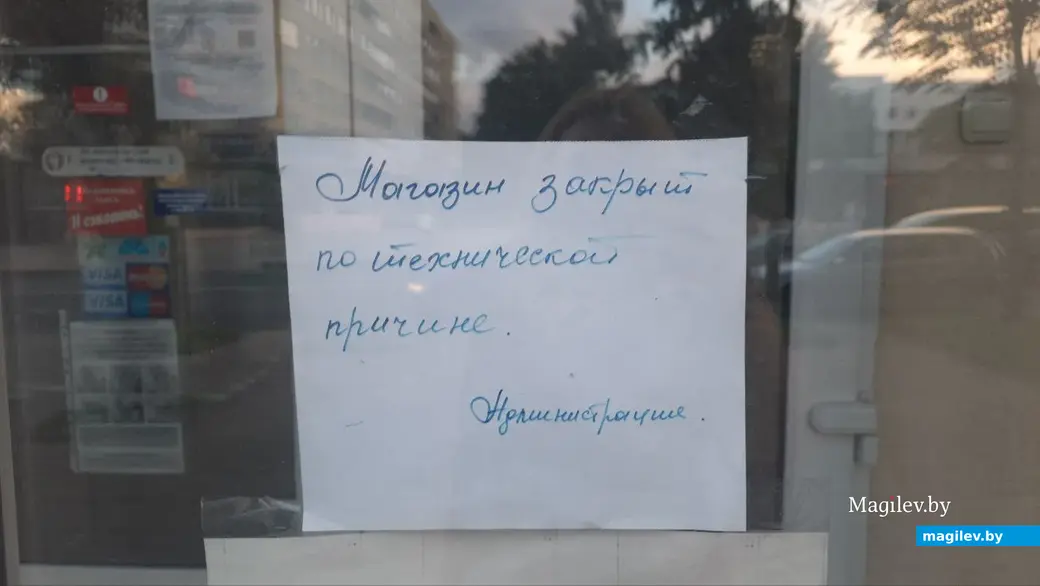 Магазин закрыт
по технической
причине.
Администрация.
Я сплачу!
VISA
VISA
Magilev.by
magilev.by